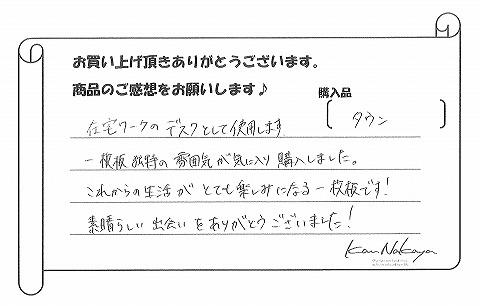 お買い上げ頂きありがとうございます。
商品のご感想をお願いします♪
購入品
タウン
在宅ワークのデスクとして使用します
一枚板独特の雰囲気が気に入り購入しました。
これからの生活がとても楽しみになる一枚板です!
素晴らしい出会いをありがとうございました!
Kan Nakaya